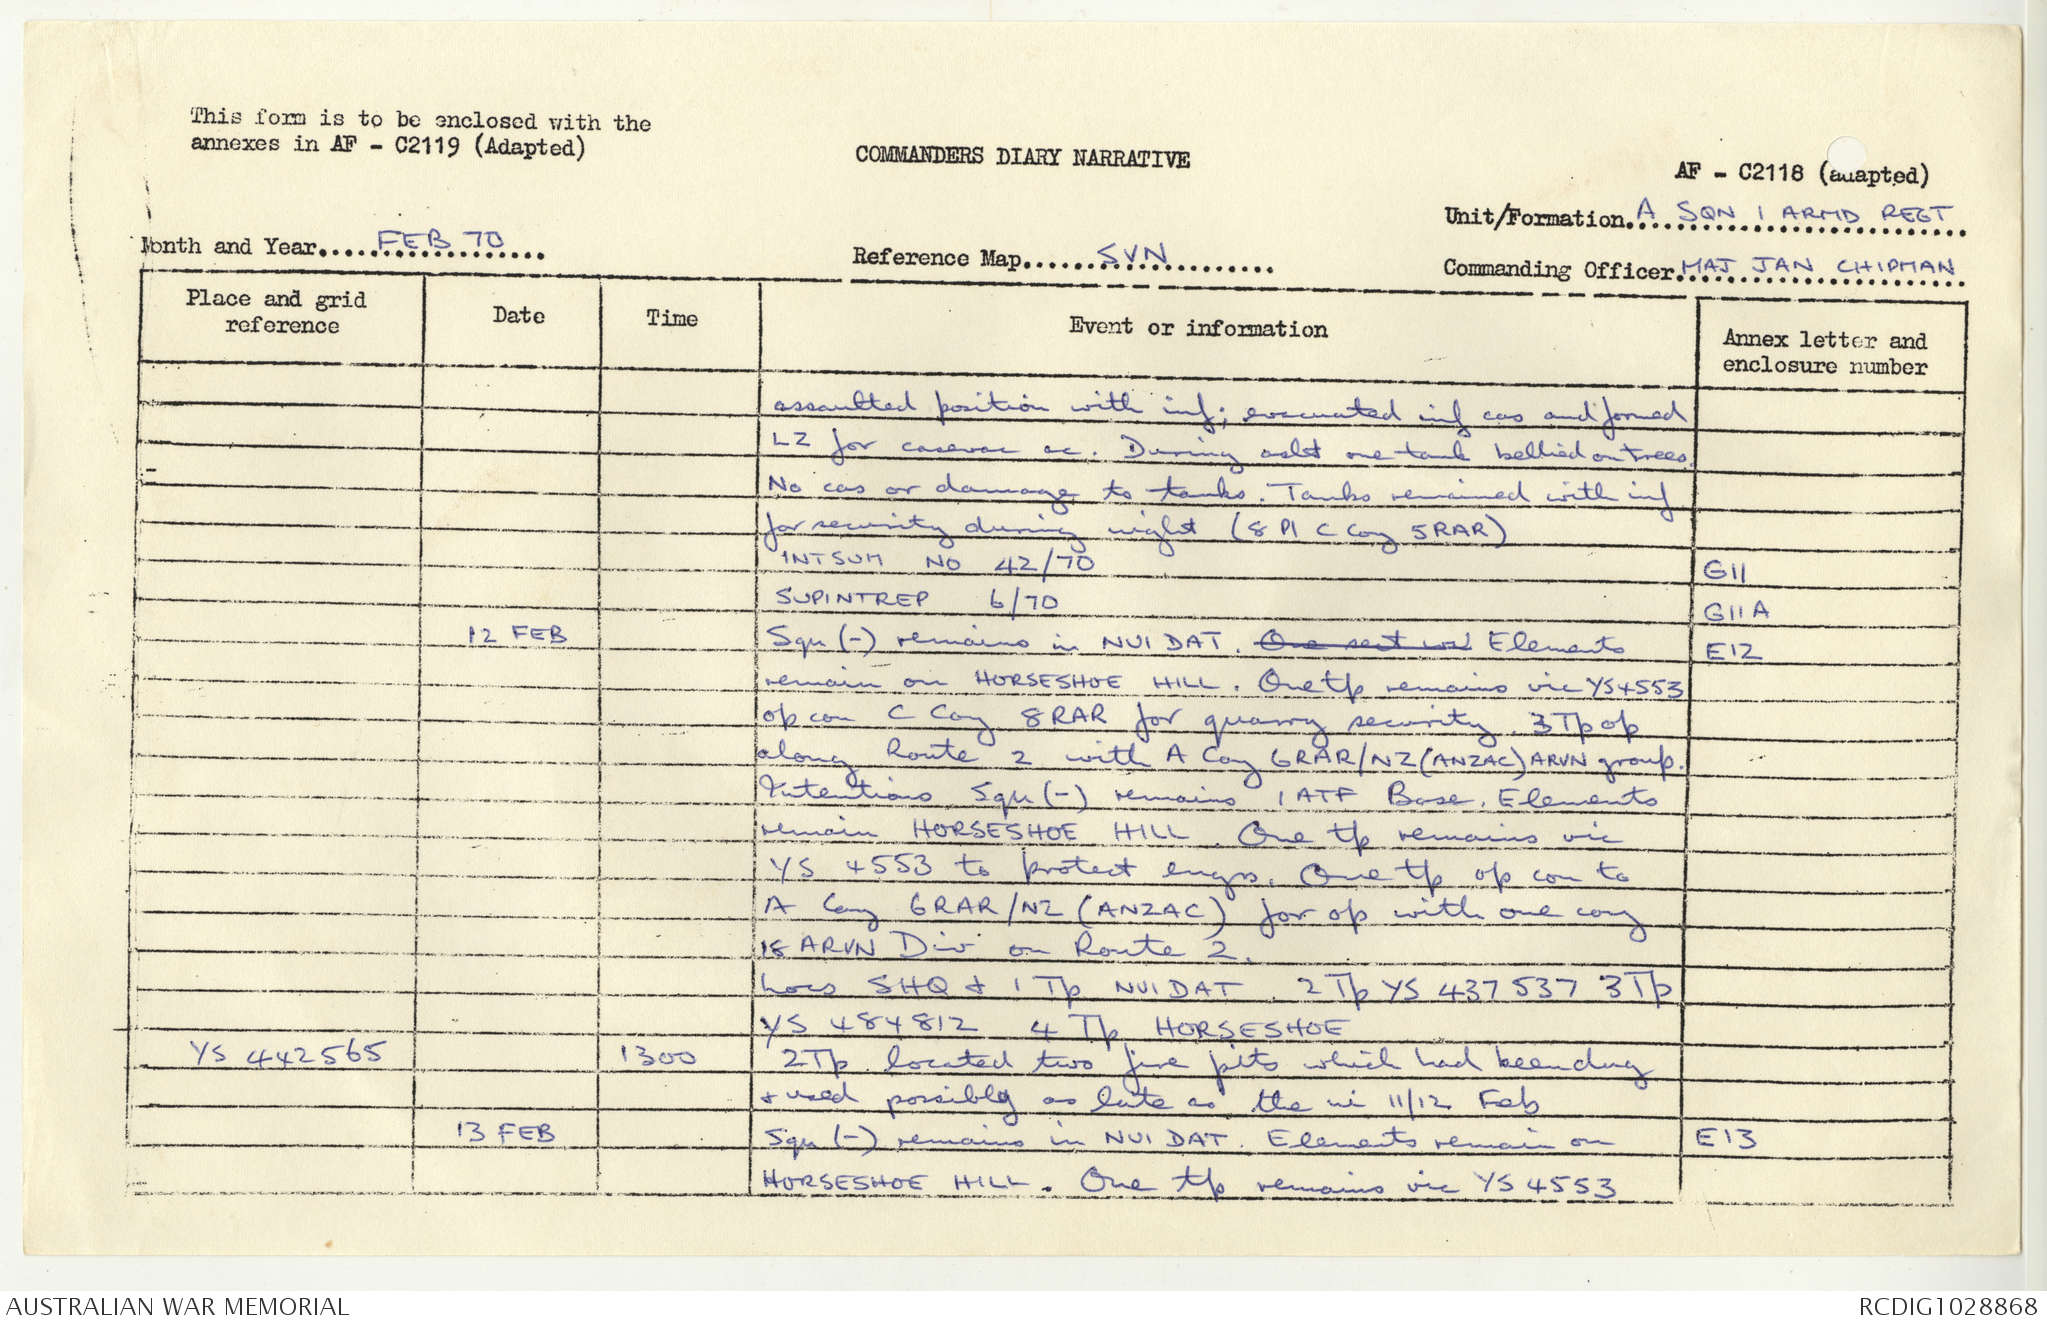 This form is to be enclosed with the
annexes in AF - C2119 (Adapted)
COMMANDERS DIARY NARRATIVE
AF - C2118 (adapted)
Unit/Formation. A SQN 1 ARMD REGT
Month and Year..... FEB 70
Reference Map...... SVN
Commanding Officer. MAJ JAN CHIPMAN
Place and grid reference Date Time Event or information Annex letter and enclosure number
assaulted position with inf; evacuated inf cas and formed
LZ for casevac ac. During aslt one tank bellied on trees.
No cas or damage to tanks. Tanks remained with inf
for security during night (8 Pl C Coy 5RAR)
INTSUM NO 42/70 G11
SUPINTREP 6/70 G11A
12 FEB Sqn (-) remains in NUI DAT. One sect Elements E12
remain on HORSESHOE HILL. One tp remains vic YS4553
op con C Coy 8RAR for quarry security. 3 Tp op
along Route 2 with A Coy 6RAR/NZ(ANZAC) ARVN group.
Intentions Sqn (-) remains 1 ATF Base. Elements
remain HORSESHOE HILL. One tp remains vic
YS 4553 to protect engrs. One tp op con to
A Coy 6RAR/NZ (ANZAC) for op with one coy
18 ARVN Div on Route 2.
Locs SHQ & 1 Tp NUI DAT. 2 Tp YS 437537 3 Tp
YS 484812 4 Tp HORSESHOE
YS 442565 1300 2Tp located two fire pits which had been dug
& used possibly as late as the ni 11/12 Feb
13 FEB Sqn (-) remains in NUI DAT. Elements remain on E13
HORSESHOE HILL. One tp remains vic YS 4553
AUSTRALIAN WAR MEMORIAL
RCDIG1028868